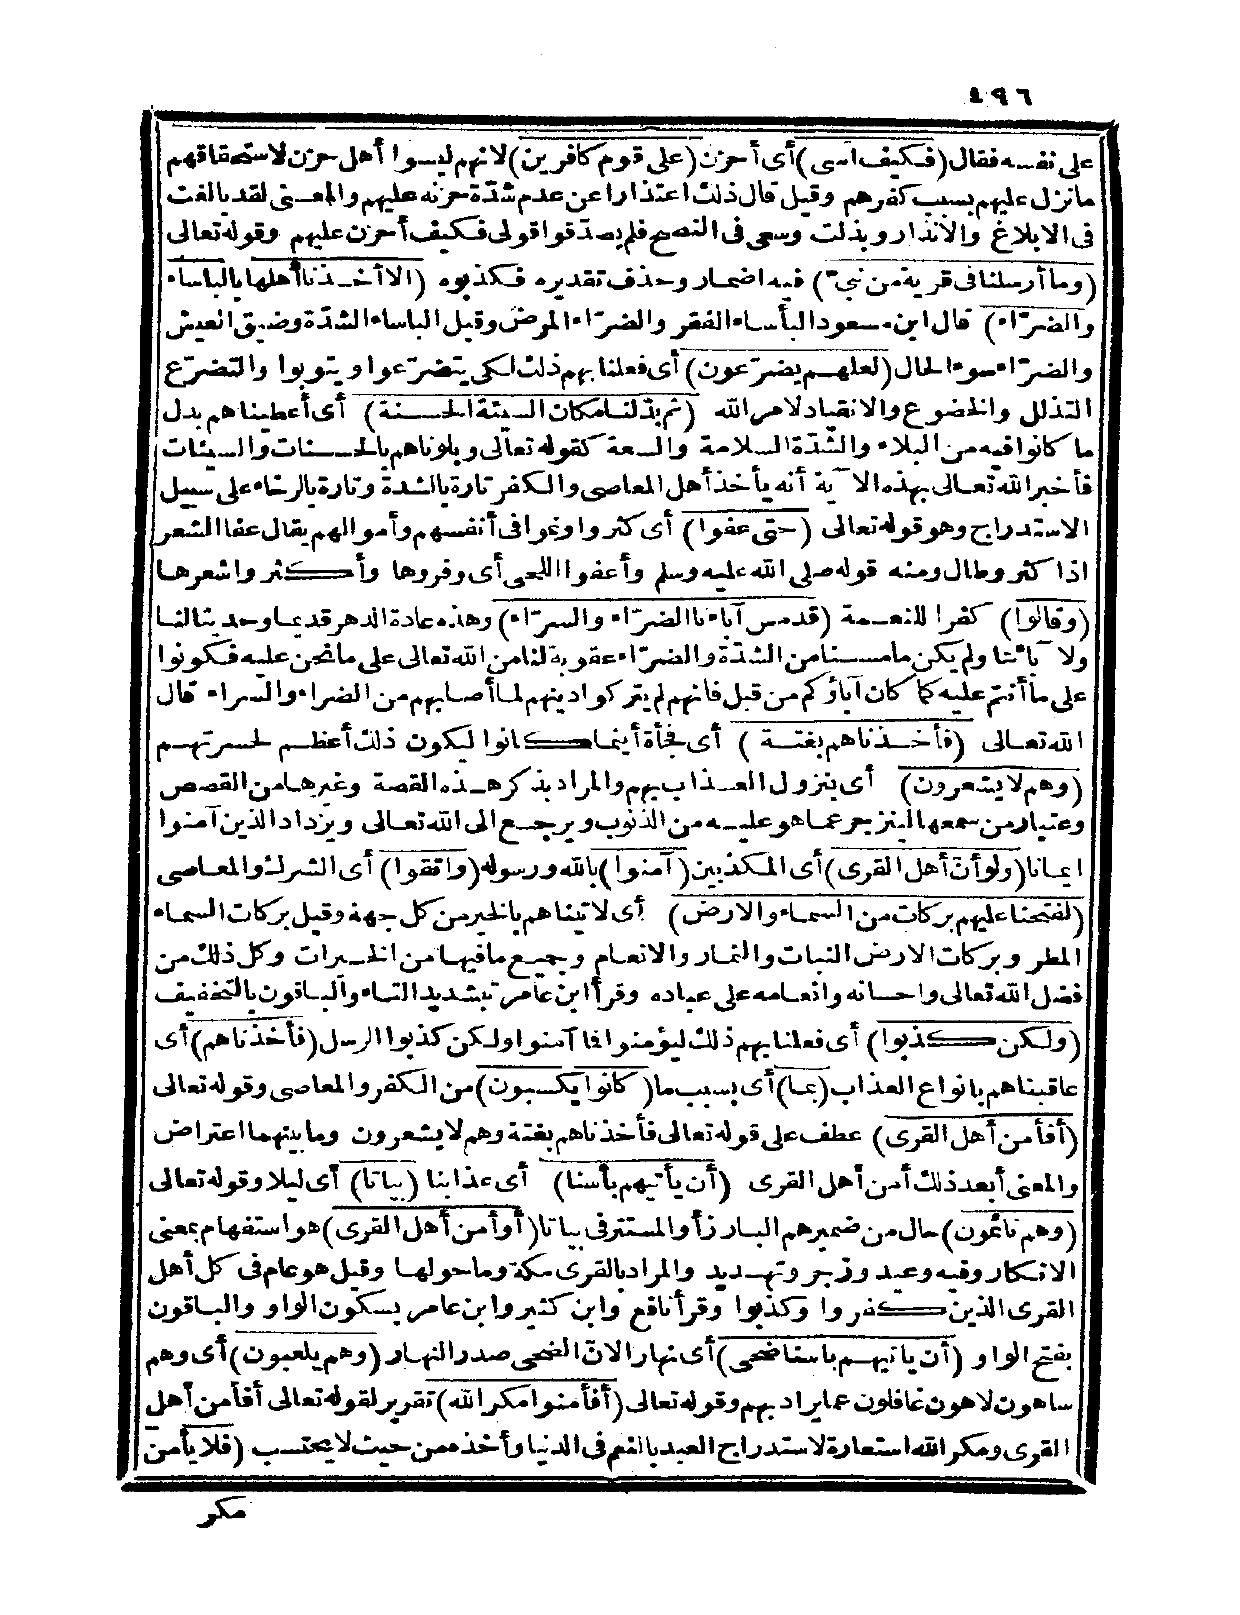 ٤٩٦
على نفسه فقال (فكيف آسى) أى أحزن (على قوم كافرين) لانهم ليسوا أهل حزن لاستحقاقهم
مانزل عليهم بسبب كفرهم وقيل قال ذلك اعتذارا عن عدم شدّة حزنه عليهم والمعنى لقد بالغت
فى الابلاغ والانذار وبذلت وسعى فى النصح فلم يصدّقوا قولى فكيف أحزن عليهم وقوله تعالى
(وما أرسلنا فى قرية من نبىّ) فيه اضمار وحذف تقديره فكذبوه (الا أخذنا أهلها بالباساء
والضرّاء) قال ابن مسعود البأساء الفقر والضرّاء المرض وقيل الباساء الشدّة وضيق العيش
والضرّاء سوء الحال (لعلهم يضرّعون) أى فعلنا بهم ذلك لكى يتضرّعوا ويتوبوا والتضرّع
التذلل والخضوع والانقياد لامر الله (ثم بدّلنا مكان السيئة الحسنة) أى أعطيناهم بدل
ما كانوا فيه من البلاء والشدّة السلامة والسعة كقوله تعالى وبلوناهم بالحسنات والسيئات
فأخبر الله تعالى بهذه الآية أنه يأخذ أهل المعاصى والكفر تارة بالشدة وتارة بالرخاء على سبيل
الاستدراج وهو قوله تعالى (حتى عفوا) أى كثروا ونموا فى أنفسهم وأموالهم يقال عفا الشعر
اذا كثر وطال ومنه قوله صلى الله عليه وسلم وأعفوا اللحى أى وفروها وأكثر واشعرها
(وقالوا) كفرا للنعمة (قد مس آباءنا الضرّاء والسرّاء) وهذه عادة الدهر قديما وحديثا لنا
ولا آبائنا ولم يكن ما مسنا من الشدّة والضرّاء عقوبة لنا من الله تعالى على ما نحن عليه فكونوا
على ما أنتم عليه كما كان آباؤكم من قبل فانهم لم يتركوا دينهم لما أصابهم من الضراء والسراء قال
الله تعالى (فأخذناهم بغتة) أى فجأة أينما كانوا ليكون ذلك أعظم لحسرتهم
(وهم لا يشعرون) أى بنزول العذاب بهم والمراد بذكر هذه القصة وغيرها من القصص
وعتبار من سمعها لينزجر عما هو عليه من الذنوب ويرجع الى الله تعالى ويزداد الذين آمنوا
ايمانا (ولو أن أهل القرى) أى المكذبين (آمنوا) بالله ورسوله (واتقوا) أى الشرك والمعاصى
(لفتحنا عليهم بركات من السماء والارض) أى لآتيناهم بالخير من كل جهة وقيل بركات السماء
المطر وبركات الارض النبات والثمار والانعام وجميع ما فيها من الخيرات وكل ذلك من
فضل الله تعالى واحسانه وانعامه على عباده وقرأ ابن عامر بتشديد التاء والباقون بالتخفيف
(ولكن كذبوا) أى فعلنا بهم ذلك ليؤمنوا فما آمنوا ولكن كذبوا الرسل (فأخذناهم) أى
عاقبناهم بانواع العذاب (بما) أى بسبب ما (كانوا يكسبون) من الكفر والمعاصى وقوله تعالى
(أفأمن أهل القرى) عطف على قوله تعالى فأخذناهم بغتة وهم لا يشعرون وما بينهما اعتراض
والمعنى أبعد ذلك أمن أهل القرى (أن يأتيهم بأسنا) أى عذابنا (بياتا) أى ليلا وقوله تعالى
(وهم نائمون) حال من ضميرهم البارز أو المستتر فى بياتا (أوأمن أهل القرى) هو استفهام بمعنى
الانكار وفيه وعيد وزجر وتهديد والمراد بالقرى مكة وما حولها وقيل هو عام فى كل أهل
القرى الذين كفروا وكذبوا وقرأ نافع وابن كثير وابن عامر بسكون الواو والباقون
بفتح الواو (أن ياتيهم باسنا ضحى) أى نهار الان الضحى صدر النهار (وهم يلعبون) أى وهم
ساهون لاهون غافلون عما يراد بهم وقوله تعالى (أفأمنوا مكر الله) تقرير لقوله تعالى أفأمن أهل
القرى ومكر الله استعارة لاستدراج العبد بالنعم فى الدنيا وأخذه من حيث لا يحتسب (فلا يأمن
مكر